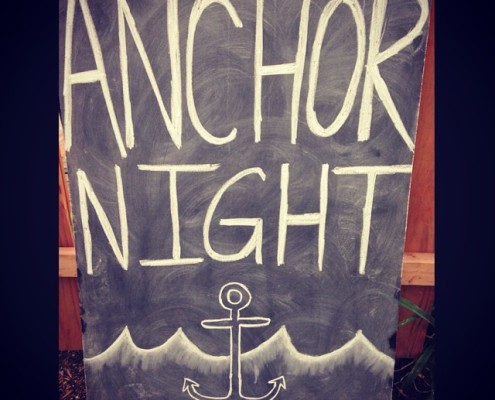 ANCHOR
NIGHT